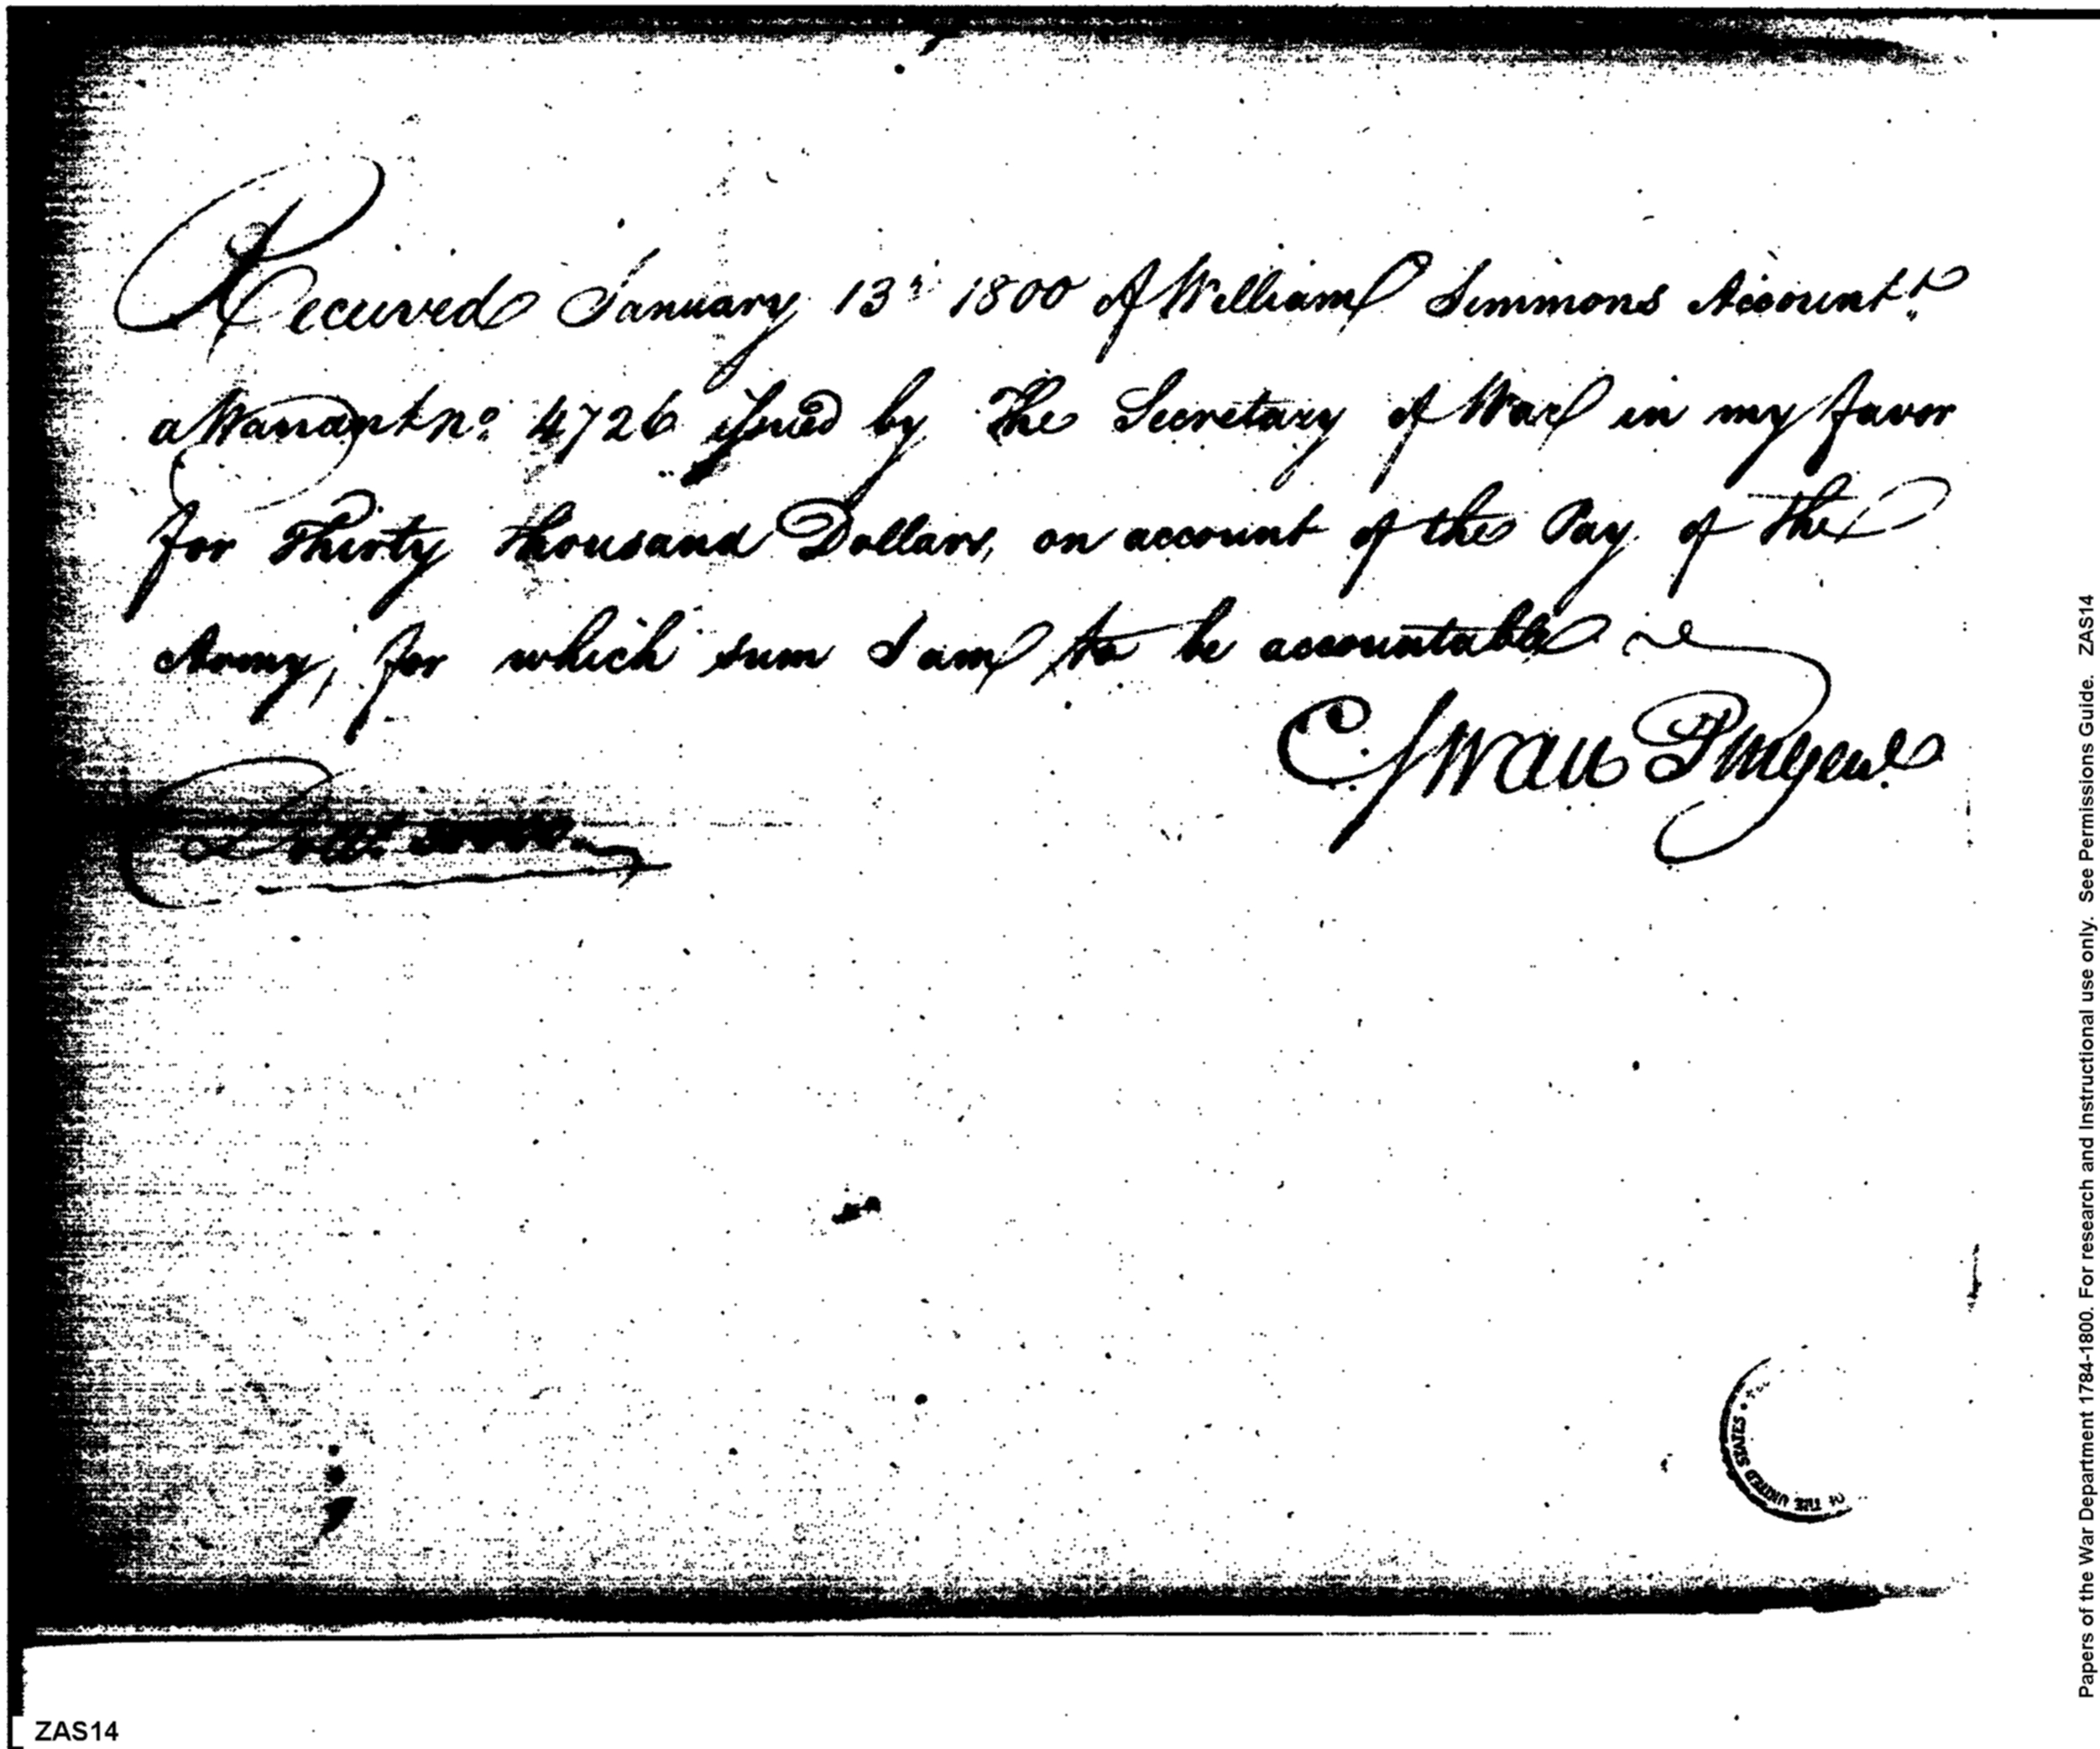 Received January 13th 1800 of William Simmons Accountt.
a Warrant no. 4726 issued by The Secretary of War in my favor
for Thirty thousand Dollars, on account of the Pay of the
Army, for which sum I am to be accountable
C. Swan PMGenl.
OF THE UNITED STATES
ZAS14
Papers of the War Department 1784-1800. For research and Instructional use only. See Permissions Guide. ZAS14